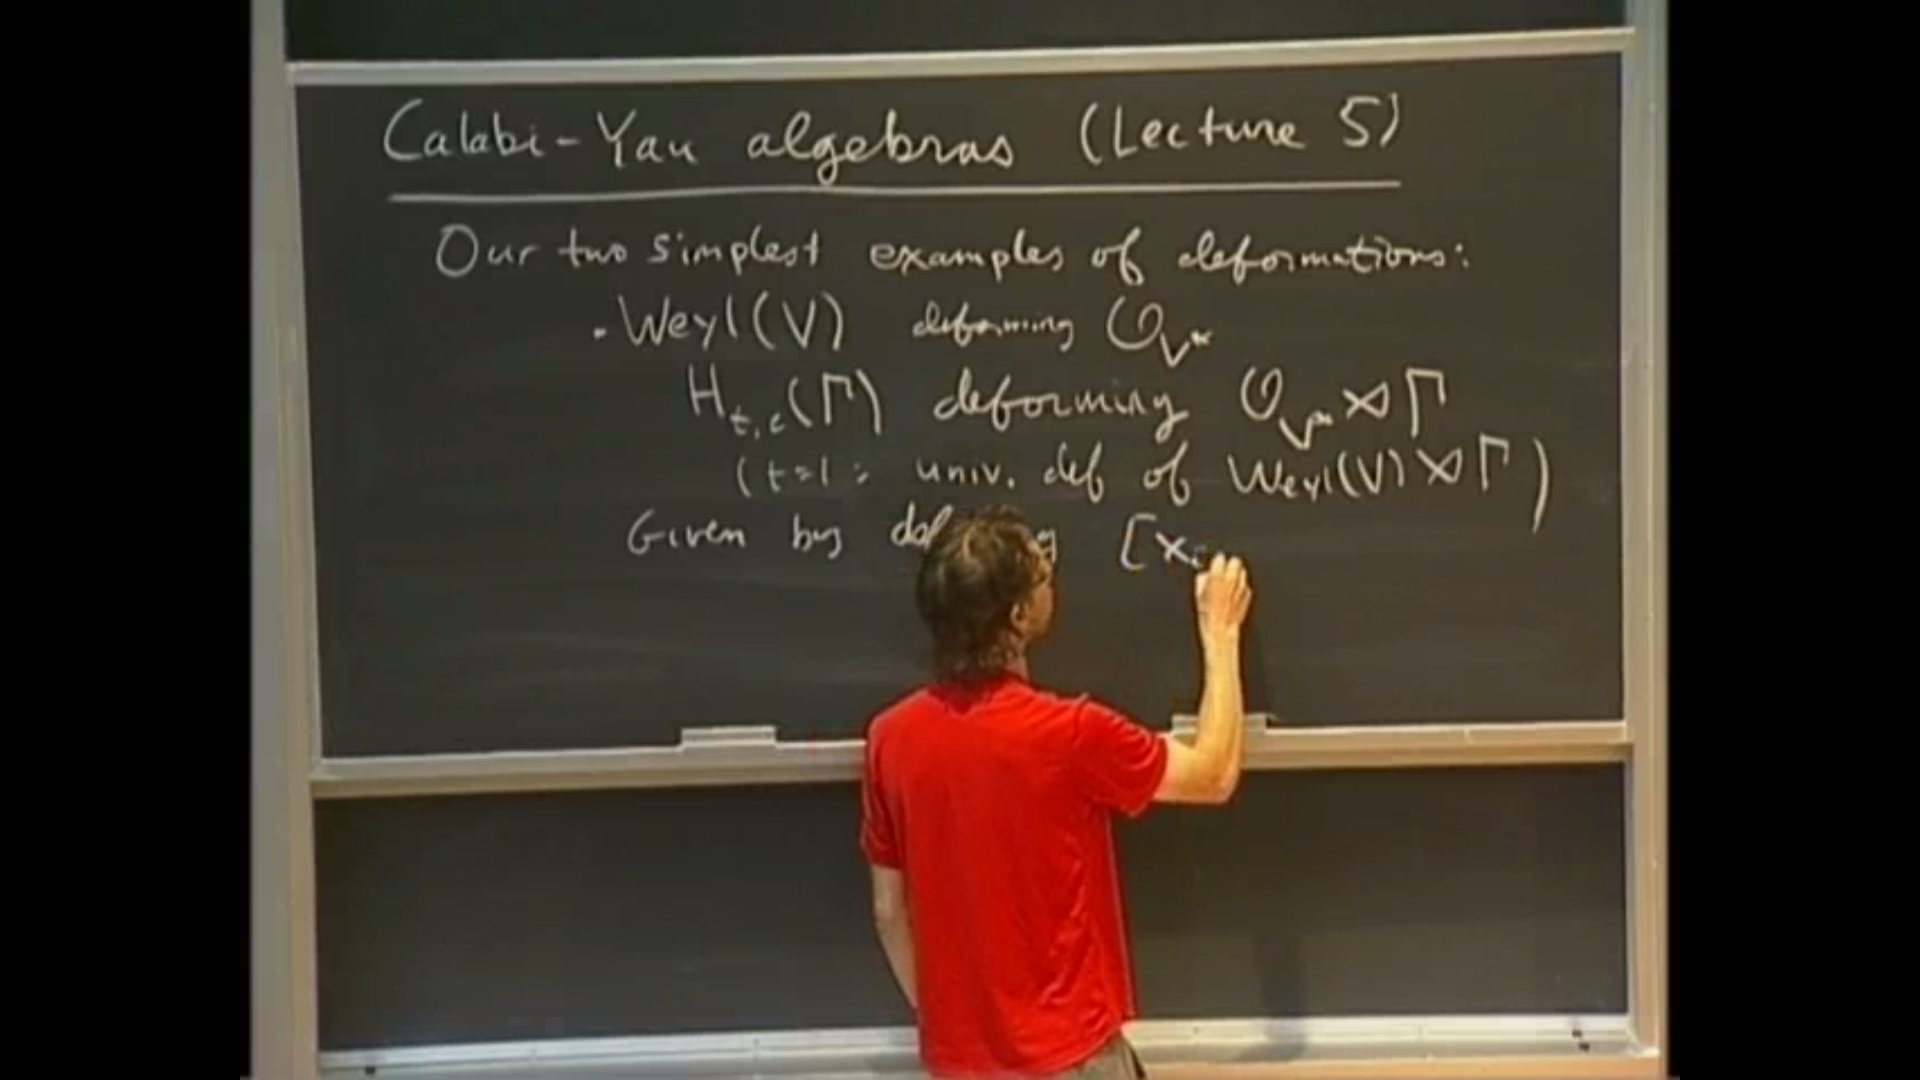 Calabi-Yau algebras (Lecture 5)
Our two simplest examples of deformations:
. Weyl(V) deforming O_{V*}
H_{t,c}(Γ) deforming O_{V*} ⋊ Γ
(t=1: univ. def of Weyl(V) ⋊ Γ)
Given by [x